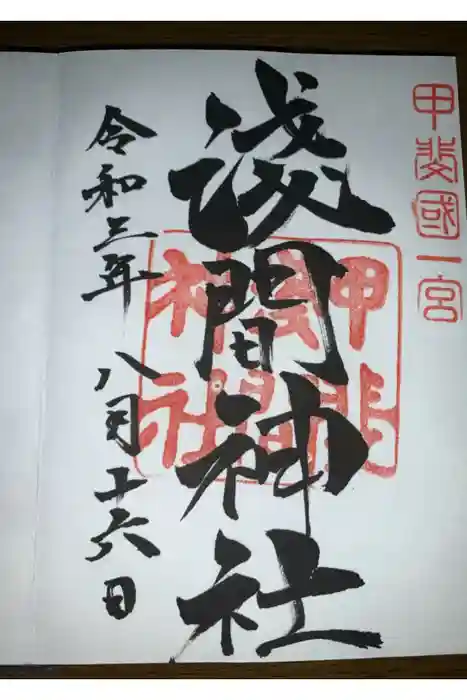 甲斐國一宮
淺間神社
甲斐淺間神社
令和三年 八月十六日